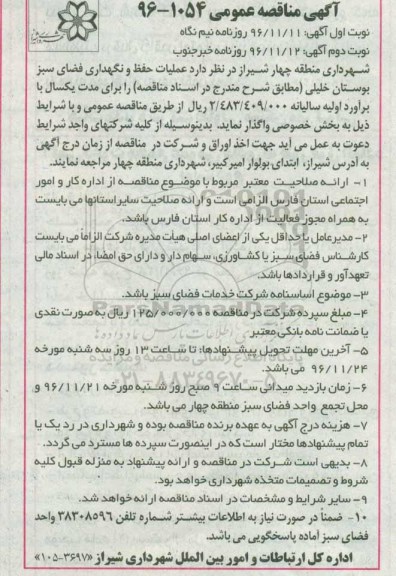 آگهی مناقصه عمومی ۱۰۵۴-۹۶
نوبت اول آگهی: ۹۶/۱۱/۱۱ روزنامه نیم نگاه
نوبت دوم آگهی: ۹۶/۱۱/۱۲ روزنامه خبرجنوب
شهرداری منطقه چهار شیراز در نظر دارد عملیات حفظ و نگهداری فضای سبز
بوستان خلیلی (مطابق شرح مندرج در اسناد مناقصه) را برای مدت یکسال با
برآورد اولیه سالیانه ۲/۴۸۳/۴۰۹/۰۰۰ ریال از طریق مناقصه عمومی و با شرایط
ذیل به بخش خصوصی واگذار نماید. بدینوسیله از کلیه شرکتهای واجد شرایط
دعوت به عمل می آید جهت اخذ اوراق و شرکت در مناقصه از زمان درج آگهی
به آدرس شیراز، ابتدای بولوار امیرکبیر، شهرداری منطقه چهار مراجعه نمایند.
۱- ارائه صلاحیت معتبر مربوط با موضوع مناقصه از اداره کار و امور
اجتماعی استان فارس الزامی است و ارائه صلاحیت سایر استانها می بایست
به همراه مجوز فعالیت از اداره کار استان فارس باشد.
۲- مدیرعامل یا حداقل یکی از اعضای اصلی هیات مدیره شرکت الزاماً می بایست
کارشناس فضای سبز یا کشاورزی، سهام دار و دارای حق امضا، در اسناد مالی
تعهدآور و قراردادها باشد.
۳- موضوع اساسنامه شرکت خدمات فضای سبز باشد.
۴- مبلغ سپرده شرکت در مناقصه ۱۲۵/۰۰۰/۰۰۰ ریال به صورت نقدی
یا ضمانت نامه بانکی معتبر
۵- آخرین مهلت تحویل پیشنهادها: تا ساعت ۱۳ روز سه شنبه مورخه
۹۶/۱۱/۲۴ می باشد.
۶- زمان بازدید میدانی ساعت ۹ صبح روز شنبه مورخه ۹۶/۱۱/۲۱ و
محل تجمع واحد فضای سبز منطقه چهار می باشد.
۷- هزینه درج آگهی به عهده برنده مناقصه بوده و شهرداری در رد یک یا
تمام پیشنهادها مختار است که در اینصورت سپرده ها مسترد می گردد.
۸- بدیهی است شرکت در مناقصه و ارائه پیشنهاد به منزله قبول کلیه
شروط و تصمیمات متخذه شهرداری خواهد بود.
۹- سایر شرایط و مشخصات در اسناد مناقصه ارائه خواهد شد.
۱۰- ضمناً در صورت نیاز به اطلاعات بیشتر شماره تلفن ۳۸۳۰۸۵۹۶ واحد
فضای سبز آماده پاسخگویی می باشد.
اداره کل ارتباطات و امور بین الملل شهرداری شیراز «۳۶۹۷-۱۰۵»